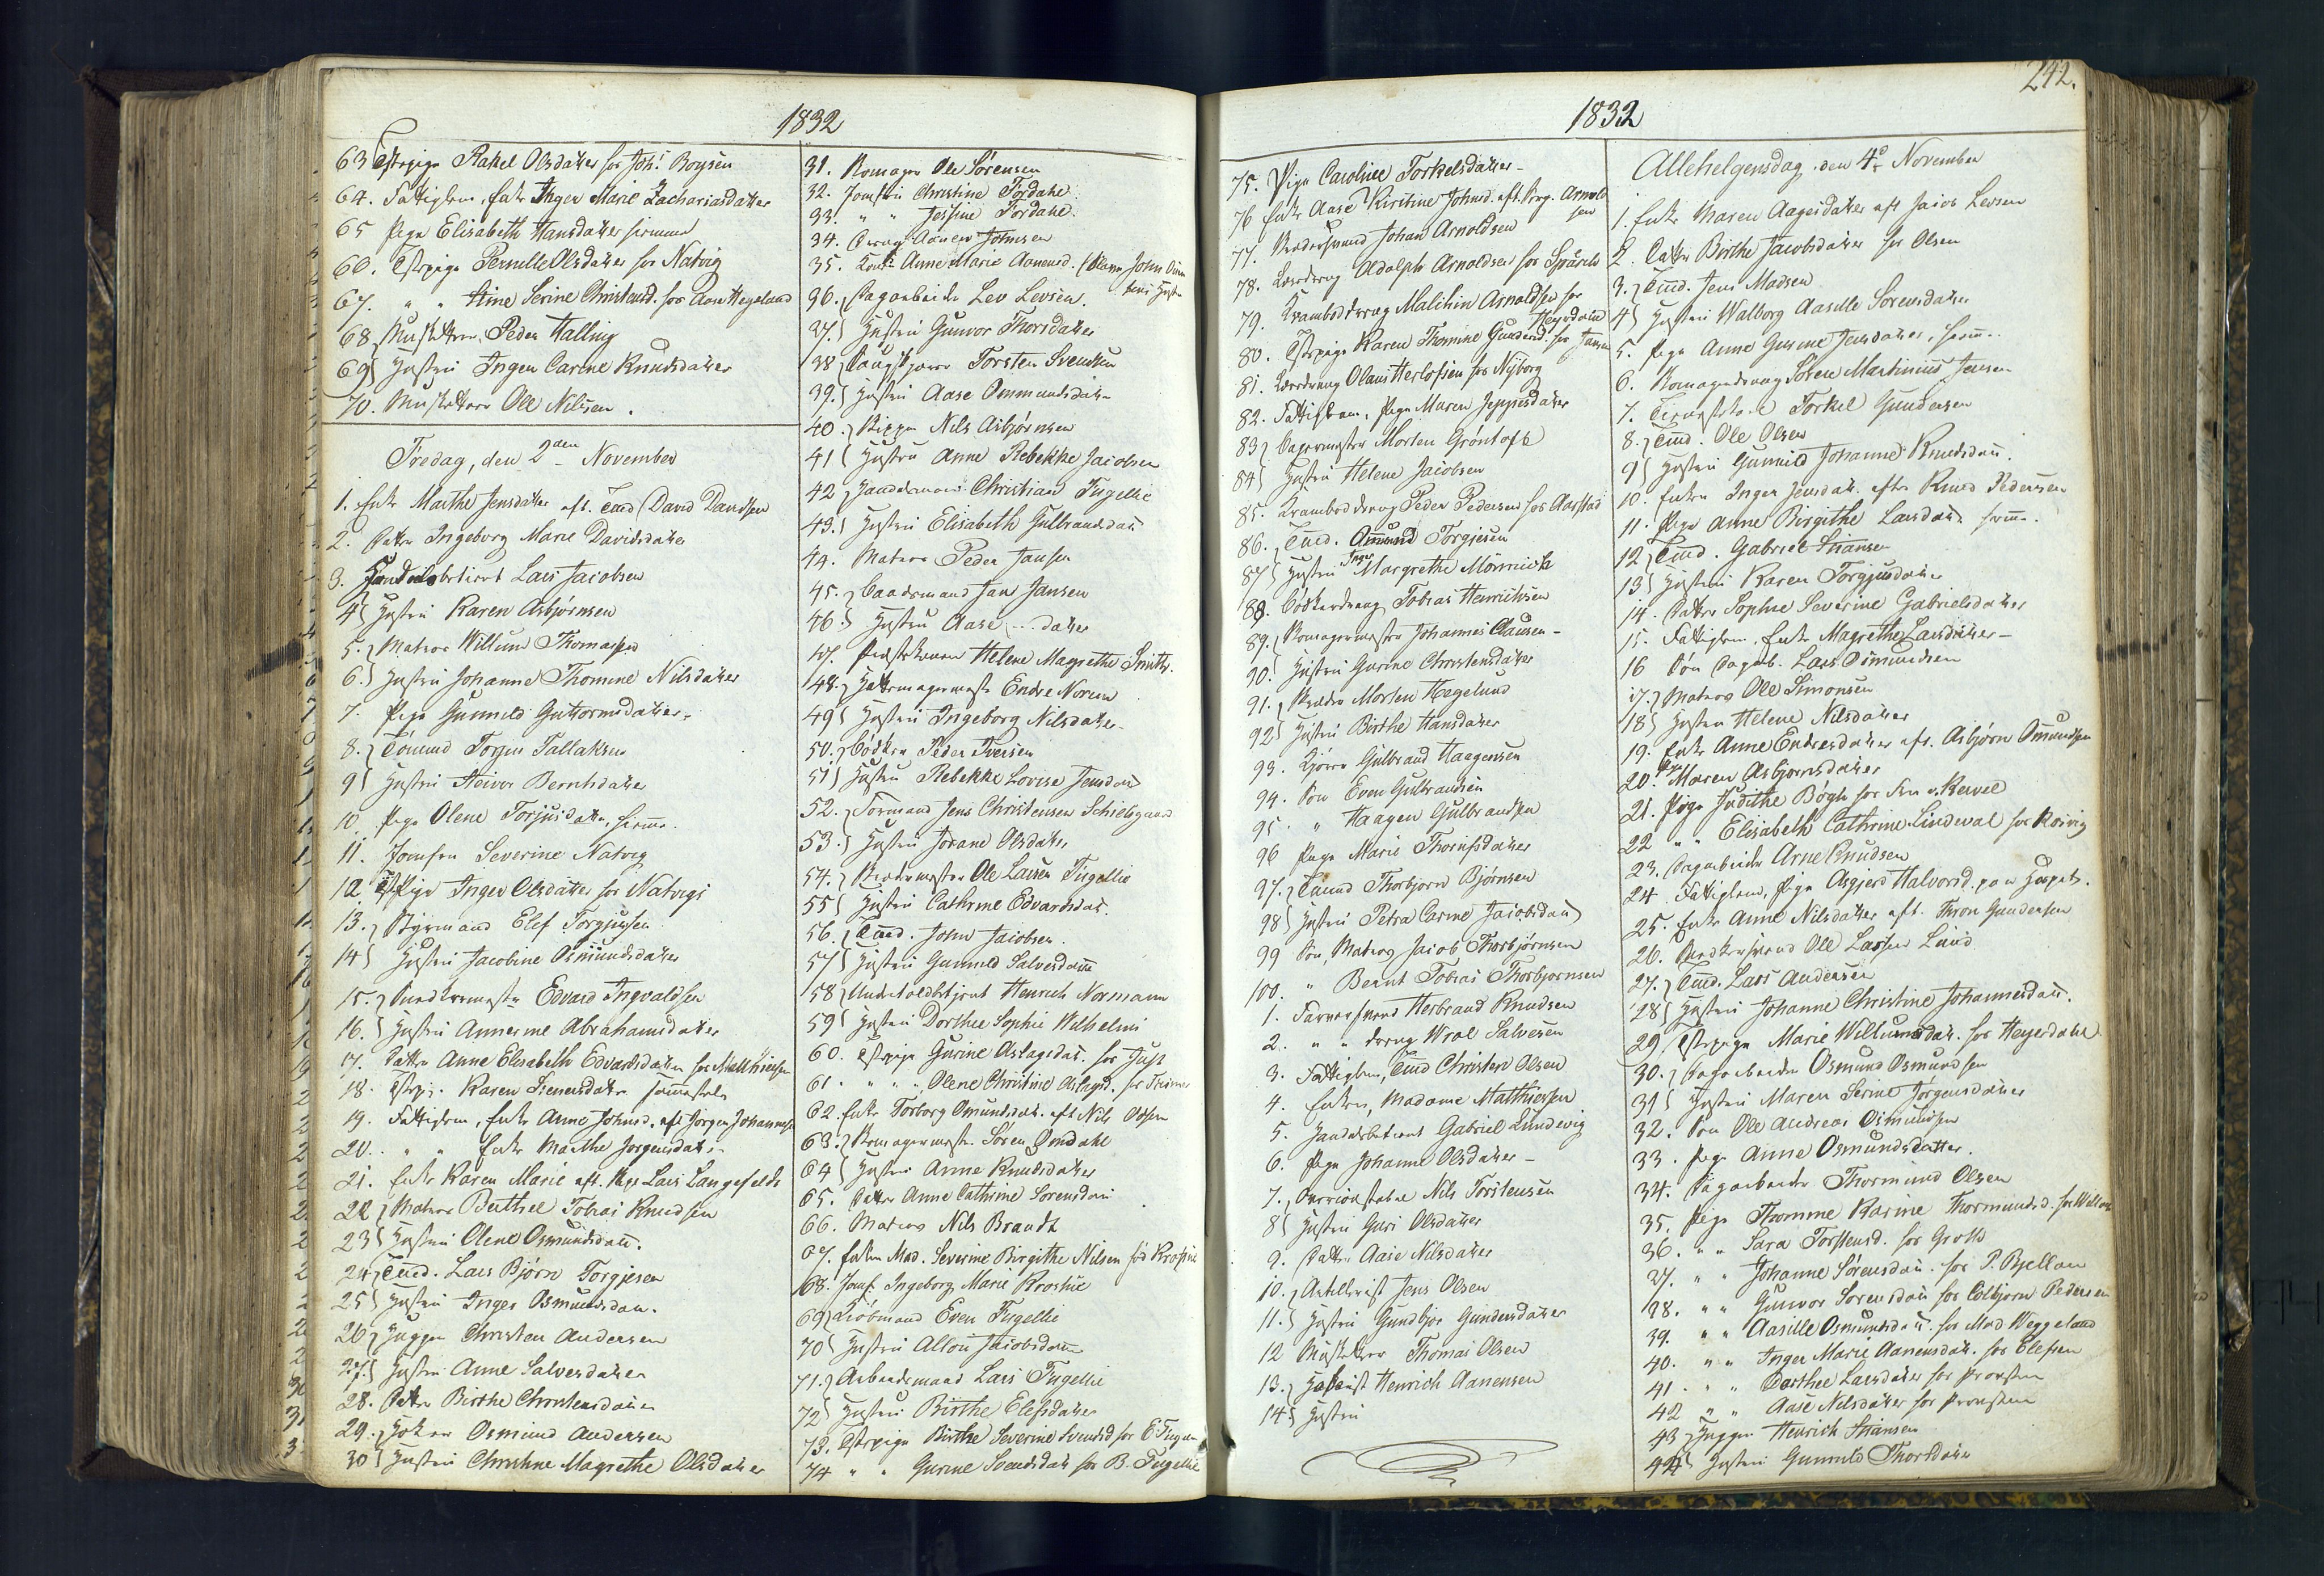 1832
63 Tstpige Rakel Olsdatter for Johs Boysen
64. Fattiglem, Enke Inger Marie Zachariasdatter
65 Pige Elisabeth Hansdatter hjemme
66. Tstpige Pernille Olsdatter for Natvig
67. " " Stine Serine Christensd. for Aase Hegeland
68 Musketteer Peder Halling
69 Hustru Inger Carine Knudsdatter
70. Musketteer Ole Nilsen.
Fredag, den 2den November
1. Enke Marthe Jensdatter eft. Tmd David Davidsen
2. Datter Ingeborg Marie Davidsdatter
3. Handelsbetient Lars Jacobsen
4 Hustru Karen Asbjørnsen
5. Matros Willum Thomassen
6. Hustru Johanne Thomine Nilsdatter
7. Pige Gunnild Guttormsdatter
8. Tømmd Torgen Tallaksen
9 Hustru Reivor Berntsdatter
10 Pige Olene Torjusdatter, hjemme
11. Jomfru Severine Natvig
12. Tst Pige Inger Olsdatter for Natvigs
13. Styrmand Elef Torgjussen
14 Hustru Jacobine Osmundsdatter
15. Snedkermester Edvard Ingvaldsen
16. Hustru Annesine Abrahamsdatter
17. Datter Anne Elisabeth Edvardsdatter for Matthiesen
18. Tstpi. Karen
19. Fattiglem, Enke Anne Johnsd. eft Jørgen Johannesen
20. " " Enke Marthe Jørgensdatter
21. Enke Karen Marie eft. Lars Langefeldt
22 Matros Berthel Tobias Knudsen
23 Hustru Olene Osmundsdatt.
24 Tmd. Lars Bjørn Torgjesen
25 Hustru Inger Osmundsdatt.
26 Hugger Christen Andersen
27. Hustru Anne Salvesdatter
28. Datter Birthe Christensdatter
29. Høker Osmund Andersen
30 Hustru Christine Magrethe Olsdatter
31. Skomager Ole Sørensen
32. Jomfru Christine Tordahl
33. " " Jessine Tordahl
34. Dreng Aanen Johnsen
35. Kone Anne Marie Aanensd.
36. Dagarbeider Lev Levsen.
37. Hustru Gunvor Thorsdatter
38 Torsten Svendsen
39. Hustru Aase Ommundsdatter
40. Nils Asbjørnsen
41 Hustru Anne Rebekke Jacobsen
42 Handelsmand Christian Fugellie
43. Hustru Elisabeth Gulbrandsdatt
44. Matros Peder Jansen
45. Baadsmand Jan Jansen
46. Hustru Aase ... datter
47. Prestekonen Helene Magrethe Smith.
48. Hattemagermester Endre Norum
49 Hustru Ingeborg Nilsdatter
50. Bødker Peder Iversen
51 Hustru Rebekke Lovise Jensdatt
52. Formand Jens Christensen Schielsgaard
53. Hustru Jorane Olsdatter
54. Ole Larsen Fugellie
55 Hustru Cathrine Edvardsdat.
56. Tmd. John Jacobsen.
57 Hustru Gunnild Salvesdatt
58 Underholdbetient Henrich Normann
59 Hustru Dorthee Sophie Wilhelmi
60. Tstpige Gurine Aslagsdat. for Just
61. " " Olene Christine Aslagsd. for
62. Enke Torborg Omundsdat. eft Nils Olsen
63. Skomagermester Søren Omdahl
64 Hustru Anne Knudsdatter
65. Datter Anne Cathrine Sørensdatt
66. Matros Nils Brandt
67. Enken Mad. Severine Birgithe Nilsen fød
68. Jomf. Ingeborg Marie
69 Kiøbmand Even Fugellie
70 Hustru Allou Jacobsdatt
71. Arbeidsmand Lars Fugellie
72 Hustru Birthe Elefsdatter
73. Tstpige Birthe Severine Svendsd for E. Fugel
74 " " Gurine Svendsdat for B. Fugellie
242.
1832
75. Pige Caroline Torkelsdatter
76 Enke Aase Kirstine Johnsd. eft. Arnoldsen
77. Johan Arnoldsen
78. Læredreng Adolph Arnoldsen for
79. Kramboddreng Malchin Arnoldsen for Heyerdahl
80. Tstpige Karen Thomine Gundersd. for Jansen
81. Læredreng Olaus Herlofsen for Nyborg
82. Fattiglem, Pige Maren Jeppesdatter
83 Bagermester Morten Grøntoft
84 Hustru Helene Jacobsen
85. Kramboddreng Peder Pedersen for Aarstad
86. Tmd. Amund Torgjesen
87 Hustru Inger Margrethe Mörnich
88. Bødkerdreng Tobias Henrichsen
89. Skomagermester Johannes Clausen
90. Hustru Gurine Christensdatter
91. Morten Hegelund
92 Hustru Birthe Hansdatter
93. Gulbrand Haagensen
94. Søn Even Gulbrandsen
95. " Haagen Gulbrandsen
96 Pige Marie Thorisdatter
97. Tmand Thorbjørn Bjørnsen
98 Hustru Petra Carine Jacobsdatt
99 Søn, Matros Jacob Thorbjørnsen
100. " Bernt Tobias Thorbjørnsen
1. Farversvend Herbrand Knudsen
2. " dreng Wraal Salvesen
3. Fattiglem, Tmd Christen Olsen
4. Enken, Madame Matthiesen
5. Handelsbetient Gabriel Lundevig
6. Pige Johanne Olsdatter
7. Nils Torstensen
8 Hustru Guri Olsdatter
9. Datter Aase Nilsdatter
10. Artillerist Jens Olsen
11. Hustru Gundbjør Gundersdatter
12 Musketteer Thomas Olsen
13. Henrich Aanensen
14 Hustru
Allehelgensdag den 4de November
1. Enke Maren Aagesdatter eft Jacob Levsen
2. Datter Birthe Jacobsdatter for Olsen
3. Tmd. Jens Madsen
4 Hustru Walborg Aasille Sørensdatter
5. Pige Anne Gurine Jensdatter, hjemme
6. Skomagerdreng Søren Martinius Jensen
7. Torkel Gundersen
8. Tmd. Ole Olsen
9 Hustru Gunnild Johanne Knudsdatt.
10. Enken Inger Jensdat. efter Knud Pedersen
11. Pige Anne Birgithe Larsdatt. hjemme.
12 Tmd. Gabriel Stiansen
13 Hustru Karen Torgjusdatter
14. Datter Sophie Severine Gabrielsdatter
15. Fattiglem. Enke Magrethe Larsdatter
16 Søn Dagarb. Lars Osmundsen
17. Matros Ole Simonsen
18 Hustru Helene Nilsdatter
19. Enke Anne Endresdatter eft. Asbjørn Omundsen
20. Pige Maren Asbjørnsdatter
21. Pige Judithe Bögh for Fru v. Kervel
22 " " Elisabeth Cathrine Lindewal for Rosvig
23. Dagarbeider Arne Knudsen
24 Fattiglem, Pige Asgjerd Halvorsd. paa Hospit.
25. Enke Anne Nilsdatter eft. Thron Gundersen
26. Snedkersvend Ole Larsen Lund
27. Tmd. Lars Andersen
28 Hustru Johanne Christine Johannesdatt.
29 Tstpige Marie Willumsdat. for Heyerdahl
30. Dagarbeider Osmund Osmundsen
31 Hustru Maren Serine Jørgensdatter
32. Søn Ole Andreas Osmundsen
33. Pige Anne Osmundsdatter.
34. Dagarbeider Thormund Olsen
35. Pige Thomine Karine Thormundsd. for
36. " " Sara Torstensd. for Groth
37. " " Johanne Sørensdatt. for P. Bjelland
38. " " Gunvor Sørensdatt for Esbjørn Pedersen
39. " " Aasille Osmundsdatt. for Mad Weggeland
40. " " Inger Marie Aanensdat. for Elefsen
41. " " Dorthee Larsdatter for Provsten
42 " " Aase Nilsdatter for Provsten
43 Hugger Henrich Stiansen
44 Hustru Gunnild Thorsdatter